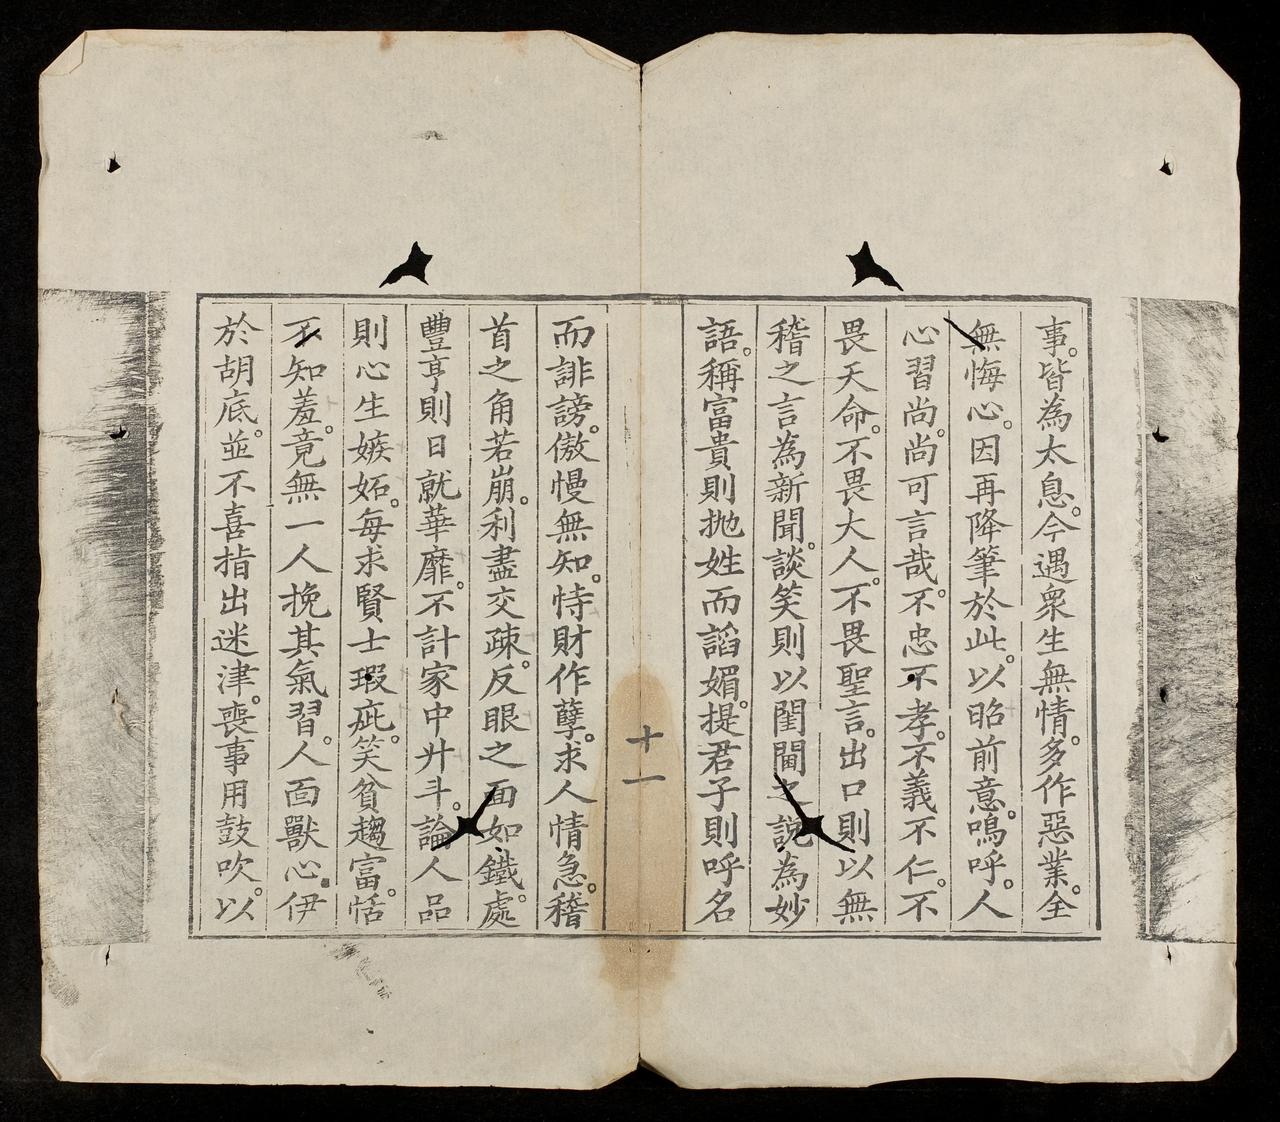 事。皆為太息。今遇衆生無情。多作惡業。全
無悔心。因再降筆於此。以昭前意。嗚呼。人
心習尚。尚可言哉。不忠不孝。不義不仁。不
畏天命。不畏大人。不畏聖言。出口則以無
稽之言為新聞。談笑則以閨閫之說為妙
語。稱富貴則抛姓而謟媚。提君子則呼名
十一
而誹謗。傲慢無知。恃財作孽。求人情急。稽
首之角若崩。利盡交疎。反眼之面如鐵。處
豐亨則日就華靡。不計家中升斗。論人品
則心生嫉妬。每求賢士瑕疵。笑貧趨富。恬
不知羞。竟無一人挽其氣習。人面獸心。伊
於胡底。並不喜指出迷津。喪事用鼓吹。以